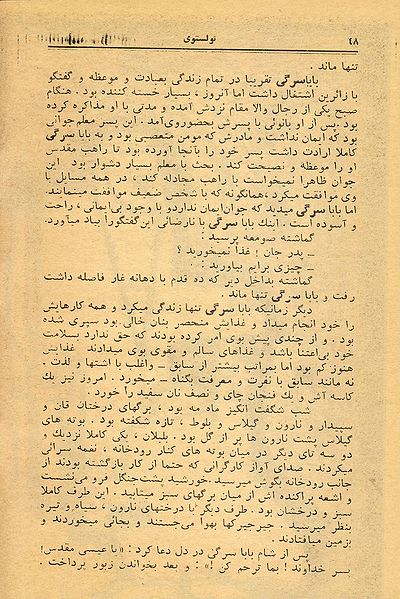 ۴۸
تولستوی
تنها ماند .
باباسرگی تقریبا در تمام زندگی بعبادت و موعظه و گفتگو
با زائرین اشتغال داشت اما آنروز ، بسیار خسته کننده بود . هنگام
صبح یکی از رجال والا مقام نزدش آمده و مدتی با او مذاکره کرده
بود . پس از او بانوئی با پسرش بحضور وی آمد . این پسر معلم جوانی
بود که ایمان نداشت و مادرش که مومن متعصبی بود و به بابا سرگی
کاملا ارادت داشت پسر خود را بآنجا آورده بود تا راهب مقدس
او را موعظه و نصیحت کند . بحث با معلم بسیار دشوار بود این
جوان ظاهرا نمیخواست با راهب مجادله کند ، در همه مسایل با
وی موافقت میکرد ، همانگونه که با شخص ضعیف موافقت مینمایند.
اما بابا سرگی میدید که جوان ایمان ندارد و با وجود بی‌ایمانی ، راحت
و آسوده است . اینك بابا سرگی با نارضائی این گفتگو را بیاد میآورد.
گماشته صومعه پرسید :
ـ پدر جان ! غذا نمیخورید ؟
ـ چیزی برایم بیاورید .
گماشته بداخل دیر که ده قدم با دهانه غار فاصله داشت
رفت و بابا سرگی تنها ماند .
دیگر زمانیکه بابا سرگی تنها زندگی میکرد و همه کارهایش
را خود انجام میداد و غذایش منحصر بنان خالی بود سپری شده
بود . و از چندی پیش بوی امر کرده بودند که حق ندارد بسلامت
خود بی‌اعتنا باشد و غذاهای سالم و مقوی بوی میدادند غذایش
هنوز کم بود اما بمراتب بیشتر از سابق ـ واغلب با اشتها و لذت .
نه مانند سابق با نفرت و معرفت بگناه ـ میخورد . امروز نیز یك
کاسه آش و یك فنجان چای و نصف نان سفید را خورد .
شب شگفت انگیز ماه مه بود ، برگهای درختان قان و
سپیدار و نارون و گیلاس و بلوط ، تازه شکفته بود . بوته های
گیلاس پشت نارون ها پر از گل بود . بلبلان ، یکی کاملا نزدیك و
دو سه تای دیگر در میان بوته های کنار رودخانه ، نغمه سرائی
میکردند . صدای آواز کارگرانی که حتما از کار بازگشته بودند از
جانب رودخانه بگوش میرسید . خورشید پشت جنگل فرو می‌نشست
و اشعه پراکنده اش از میان برگهای سبز میتابید . این طرف کاملا
سبز و درخشان بود . طرف دیگر با درختهای نارون ، سیاه و تیره
بنظر میرسید . جیرجیرکها بهوا می‌جستند و بجائی میخوردند و
بزمین میافتادند .
پس از شام بابا سرگی در دل دعا کرد : « یا عیسی مقدس!
پسر خداوند ! بما ترحم کن !» : و بعد بخواندن زبور پرداخت .